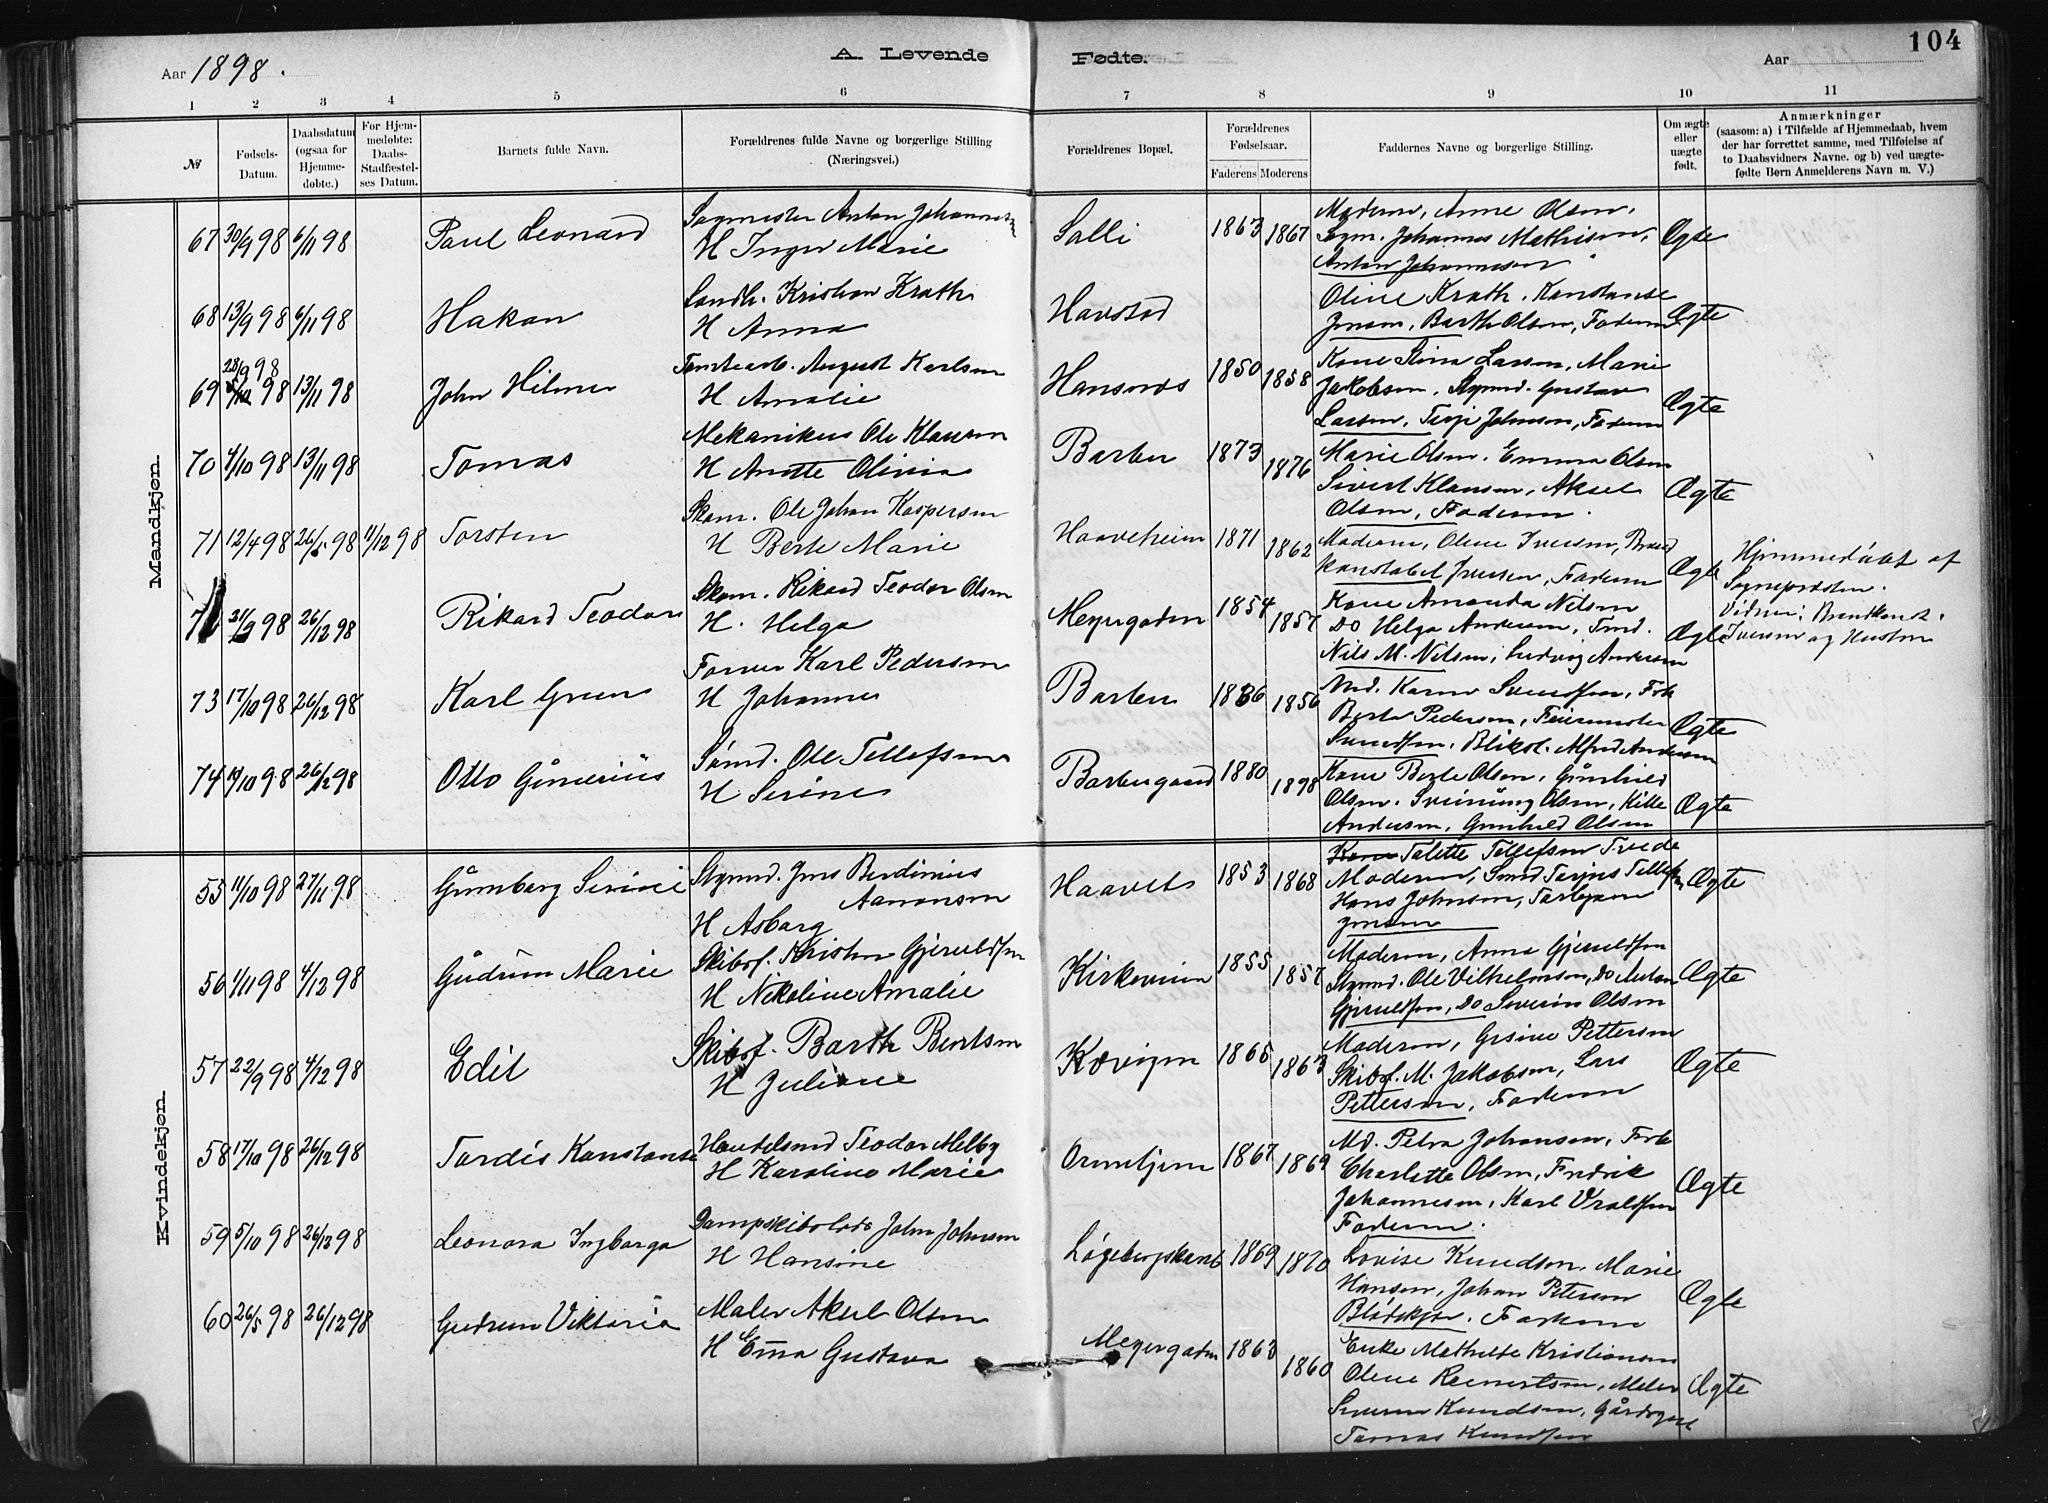 Aar 1898.
A. Levende Fødte.
Aar
104
1 2 3 4 5 6 7 8 9 10 11
№
Fødsels-Datum.
Daabsdatum (ogsaa for Hjemme-døbte.)
For Hjem-medøbte: Daabs-Stadfæstel-ses Datum.
Barnets fulde Navn.
Forældrenes fulde Navne og borgerlige Stilling (Næringsvei.)
Forældrenes Bopæl.
Forældrenes Fødselsaar.
Faderens Moderens
Faddernes Navne og borgerlige Stilling.
Om ægte eller uægte født.
Anmærkninger
(saasom: a) i Tilfælde af Hjemmedaab, hvem
der har forrettet samme, med Tilføielse af
to Daabsvidners Navne. og b) ved uægte-
fødte Børn Anmelderens Navn m. V.)
Mandkjøn.
67 30/9 98 6/11 98 Paul Leonard
H Inger Marie
Salli 1863 1867
Moderen, Anne Olsen,
Johannes Mathisen,
Anton Johannesen
Ægte
68 13/9 98 6/11 98 Hakon
Kristian Krath
H Anna
Havstad
Oline Krath, Konstanse
Jensen, Barth Olsen, Faderen
Ægte
69 28/9 98 13/11 98 John Hilmer
August Karlsen
H Amalie
Hansnæs 1850 1858
Kone Stina Larsen, Marie
Jakobsen, Styrmd. Gustav
Larsen, Terje Johnsen, Faderen
Ægte
70 4/10 98 13/11 98 Tomas
Mekanikus Ole Klausen
H Anette Olivia
Barbu 1873 1876
Marie Olsen, Emma Olsen
Sivert Klausen, Aksel
Olsen, Faderen.
Ægte
71 12/4 98 26/5 98 11/12 98 Torsten
Skom. Ole Johan Kaspersen
H Berte Marie
Haaveheien 1871 1862
Moderen, Olene Iversen, Brand
konstabel Iversen, Faderen
Ægte
Hjemmedøbt af
Sognepræsten.
Vidner: Brandkonst.
Iversen og Hustru
98 26/12 98 Rikard Teodor
Skom. Rikard Teodor Olsen
H. Helga
Meyergaden 1854 1857
Kone Amanda Nilsen
Do Helga Andersen, Tmd.
Nils M. Nilsen, Ludvig Andersen
Ægte
73 17/10 98 26/12 98 Karl Green
Farver Karl Pedersen
H Johanne
Barbu 1856
Md. Karen Svendsen, Frk
Berta Pedersen, Feiermester
Svendsen, Bliksl. Alfred Andersen
Ægte
74 19/10 98 26/12 98 Otto Gunerius
Sømd. Ole Tellefsen
H Serine
Barbugaard 1880 1898
Kone Berte Olsen, Gunhild
Olsen, Sveinung Olsen, Kille
Andersen, Gunhild Olsen
Ægte
Kvindekjøn.
55 11/10 98 27/11 98 Gunborg Serine
Styrmd. Jens Berdinius
Aanonsen
H Asborg
Haavet 1853 1868
Kone Talette Tellefsen Tvede
Moderen, Smed Terjus Tellefsen
Hans Johnsen, Torbjørn
Jensen
Ægte
56 1/11 98 4/12 98 Gudrun Marie
Skibsf. Kristen Gjeruldsen
H Nikoline Amalie
Kirkeveien 1855 1857
Moderen, Anna Gjeruldsen
Styrmd. Ole Vilhelmsen, Do Anton
Gjeruldsen, Do Severin Olsen
Ægte
57 22/9 98 4/12 98 Edit
Skibsf. Barth Bentsen
H Juliane
Kævigen 1865 1863
Moderen, Gesine Pettersen
Skibsf. M. Jakobsen, Lars
Pettersen, Faderen
Ægte
58 17/10 98 26/12 98 Tordis Konstanse
Handelsmd Teodor Melby
H Karoline Marie
1867 1869
Md. Petra Johansen, Frk
Charlotte Olsen, Fredrik
Johannesen, Karl Vraldsen
Faderen.
Ægte
59 5/10 98 26/12 98 Leonora Ingborga
John Johnsen
H Hansine
Løgebergskant 1869 1870
Lovise Knudsen, Marie
Hansen, Johan Petersen
Blødekjær, Faderen
Ægte
60 26/5 98 26/12 98 Gudrun Viktoria
Maler Aksel Olsen
H Emma Gustava
Meyergaden 1863 1860
Enke Mathilde Kristiansen
Olene Reinertsen, Maler
Severin Knudsen,
Tomas Knudsen
Ægte